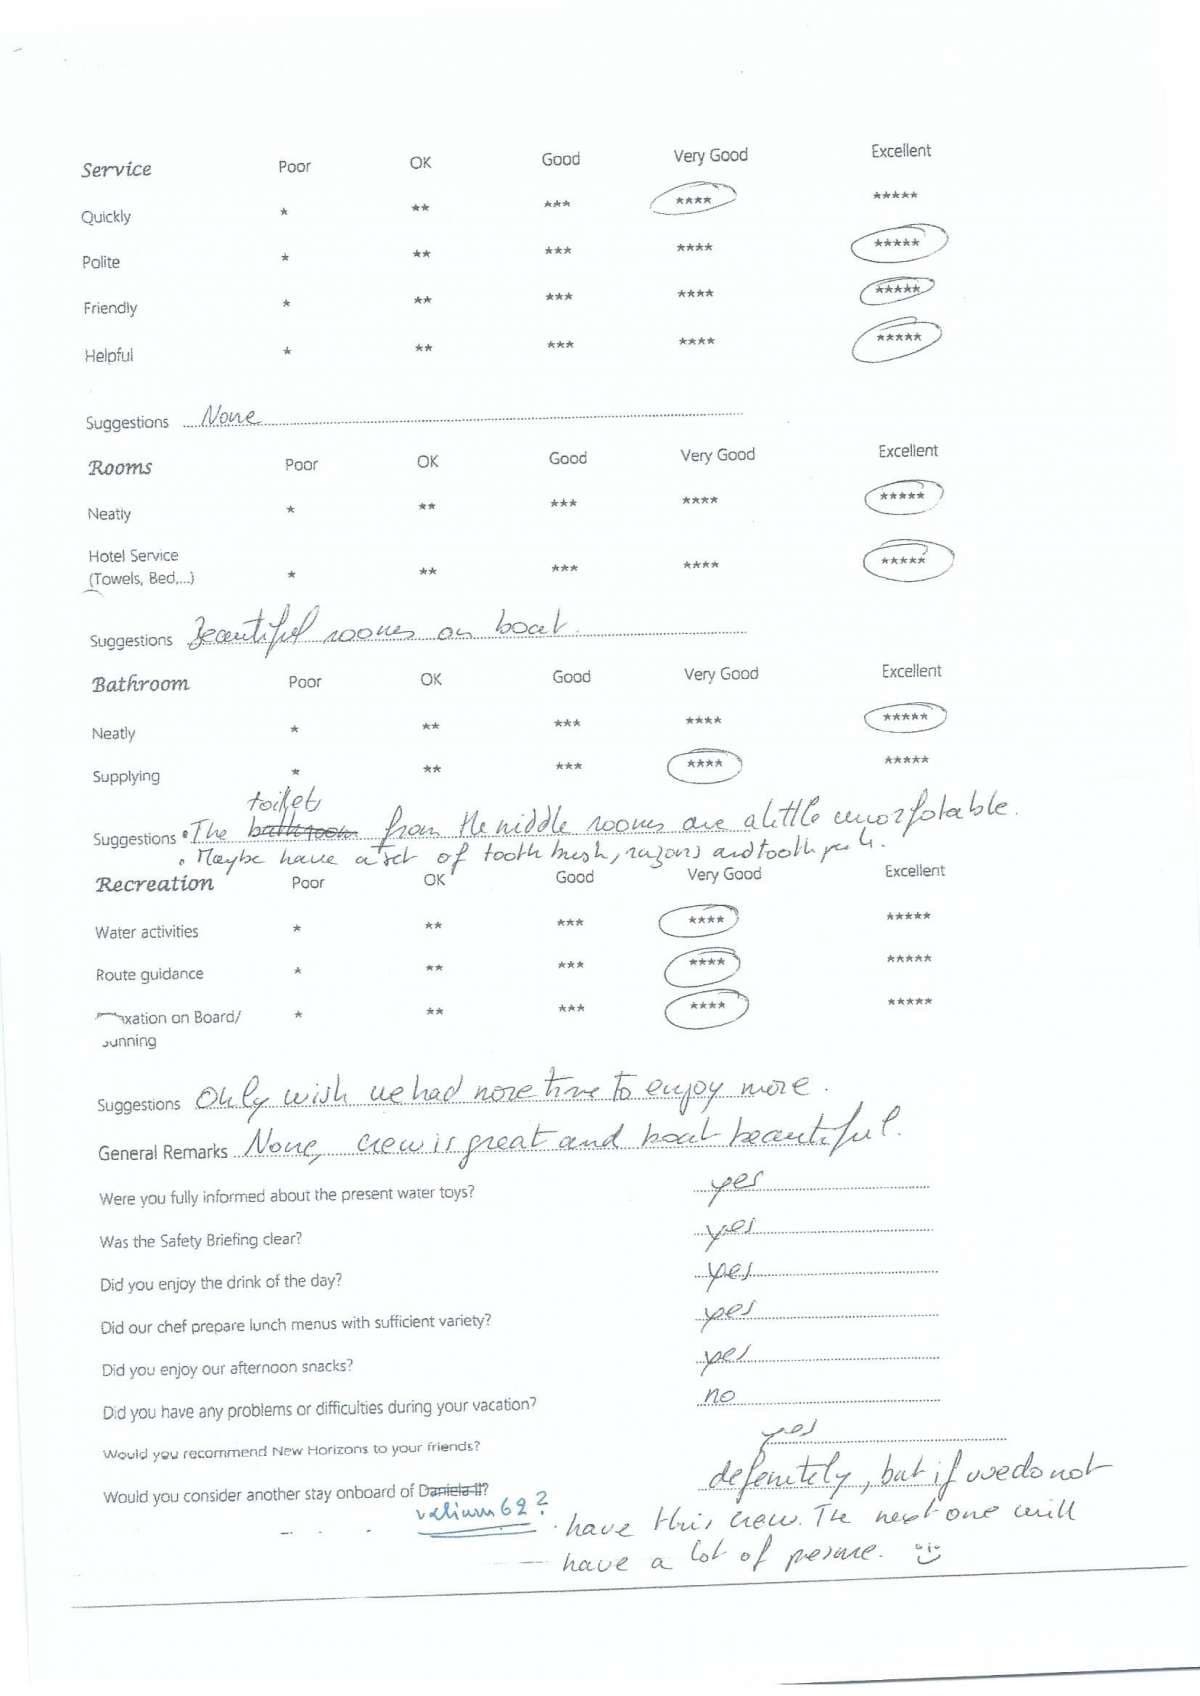 Service Poor OK Good Very Good Excellent
Quickly * ** *** **** *****
Polite * ** *** **** *****
Friendly * ** *** **** *****
Helpful * ** *** **** *****
Suggestions None
Rooms Poor OK Good Very Good Excellent
Neatly * ** *** **** *****
Hotel Service
(Towels, Bed,...) * ** *** **** *****
Suggestions Beautiful rooms on boat.
Bathroom Poor OK Good Very Good Excellent
Neatly * ** *** **** *****
Supplying * ** *** **** *****
toilets
Suggestions • The bathroom from the middle rooms are a little
• Maybe have a set of tooth brush, razors and tooth
Recreation Poor OK Good Very Good Excellent
Water activities * ** *** **** *****
Route guidance * ** *** **** *****
xation on Board/ * ** *** **** *****
Sunning
Suggestions Only wish we had more time to enjoy more.
General Remarks None, crew is great and boat beautiful.
Were you fully informed about the present water toys? yes
Was the Safety Briefing clear? yes
Did you enjoy the drink of the day? yes
Did our chef prepare lunch menus with sufficient variety? yes
Did you enjoy our afternoon snacks? yes
Did you have any problems or difficulties during your vacation? no
Would you recommend New Horizons to your friends? yes
Would you consider another stay onboard of Daniela II? defenitely, but if we do not
valium 62? have this crew. The next one will
have a lot of